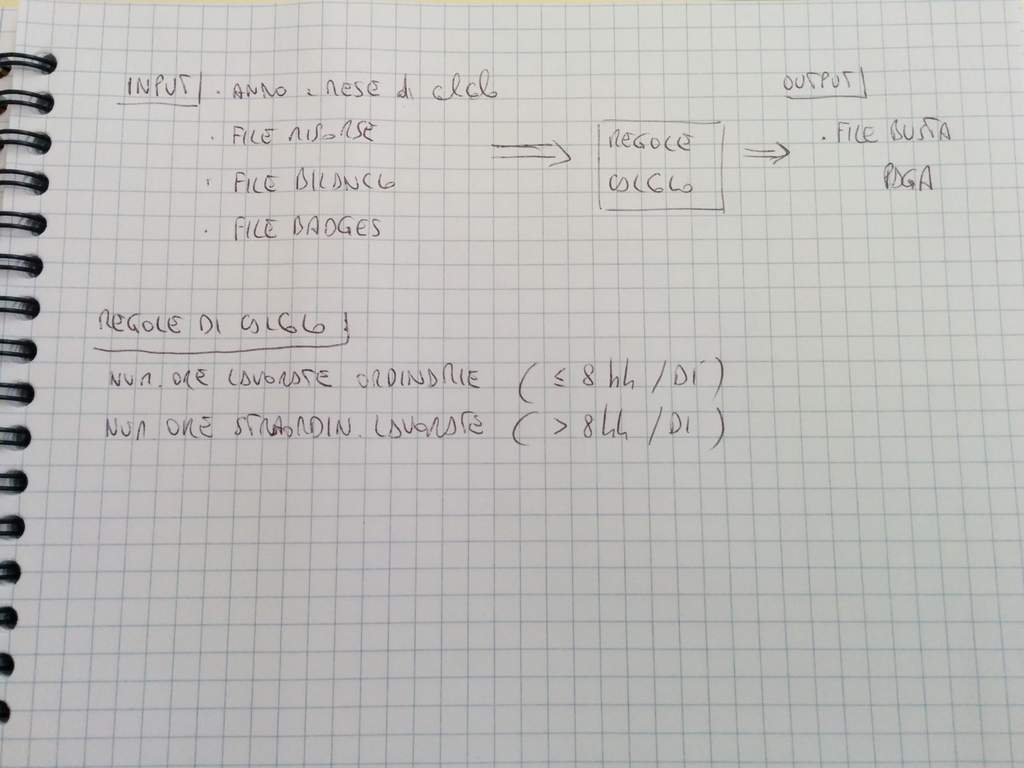 INPUT . ANNO e MESE di calcolo
. FILE RISORSE
. FILE BILANCIO
. FILE BADGES
REGOLE
CALCOLO
OUTPUT
. FILE BUSTA
PAGA
REGOLE DI CALCOLO
NUM. ORE LAVORATE ORDINARIE ( ≤ 8 hh / DÌ )
NUM ORE STRAORDIN. LAVORATE ( > 8hh / DÌ )